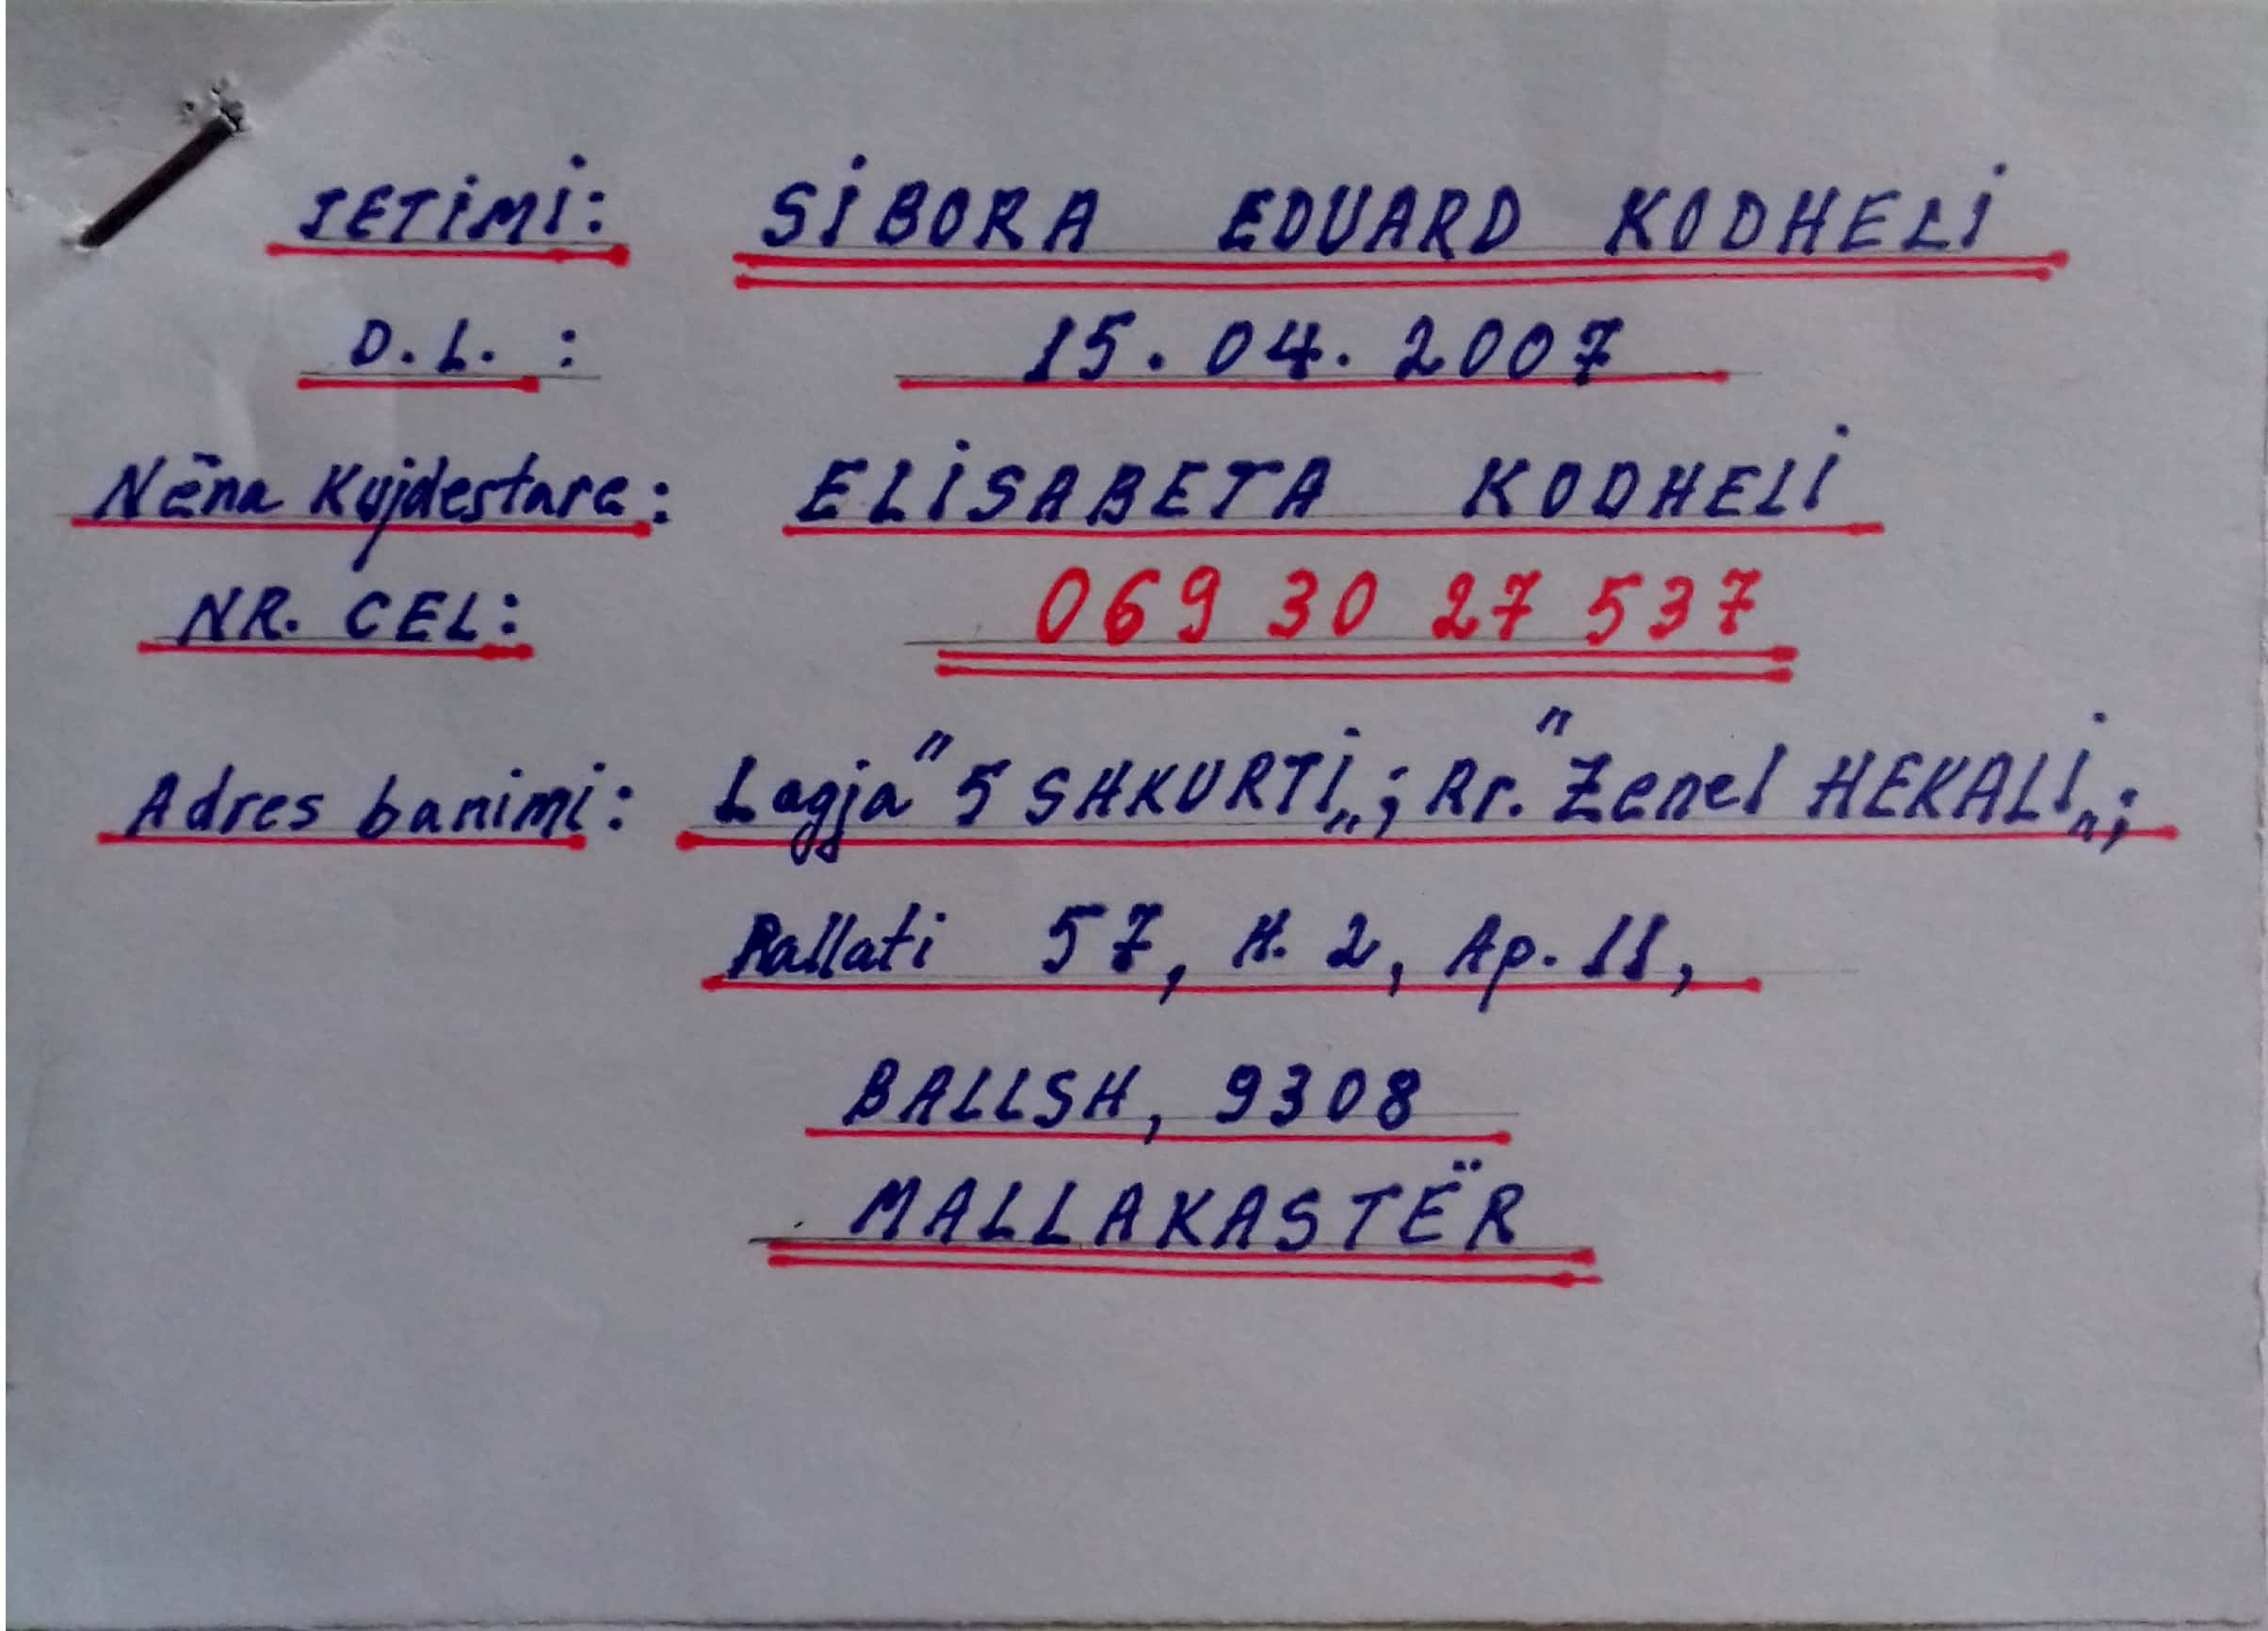 JETIMI: SIBORA EDUARD KODHELI
D.L. : 15.04.2007
Nëna Kujdestare: ELISABETA KODHELI
NR. CEL: 069 30 27 537
Adres banimi: Lagja "5 SHKURTI„; Rr. "Zenel HEKALI„;
Pallati 57, H. 2, Ap. 11,
BALLSH, 9308
MALLAKASTËR